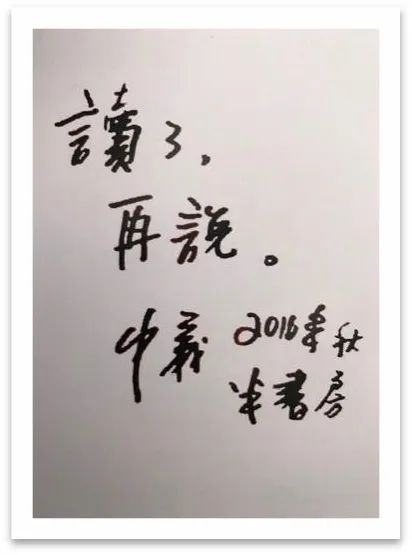 讀了，
再說。
中義 2016年秋
半書房